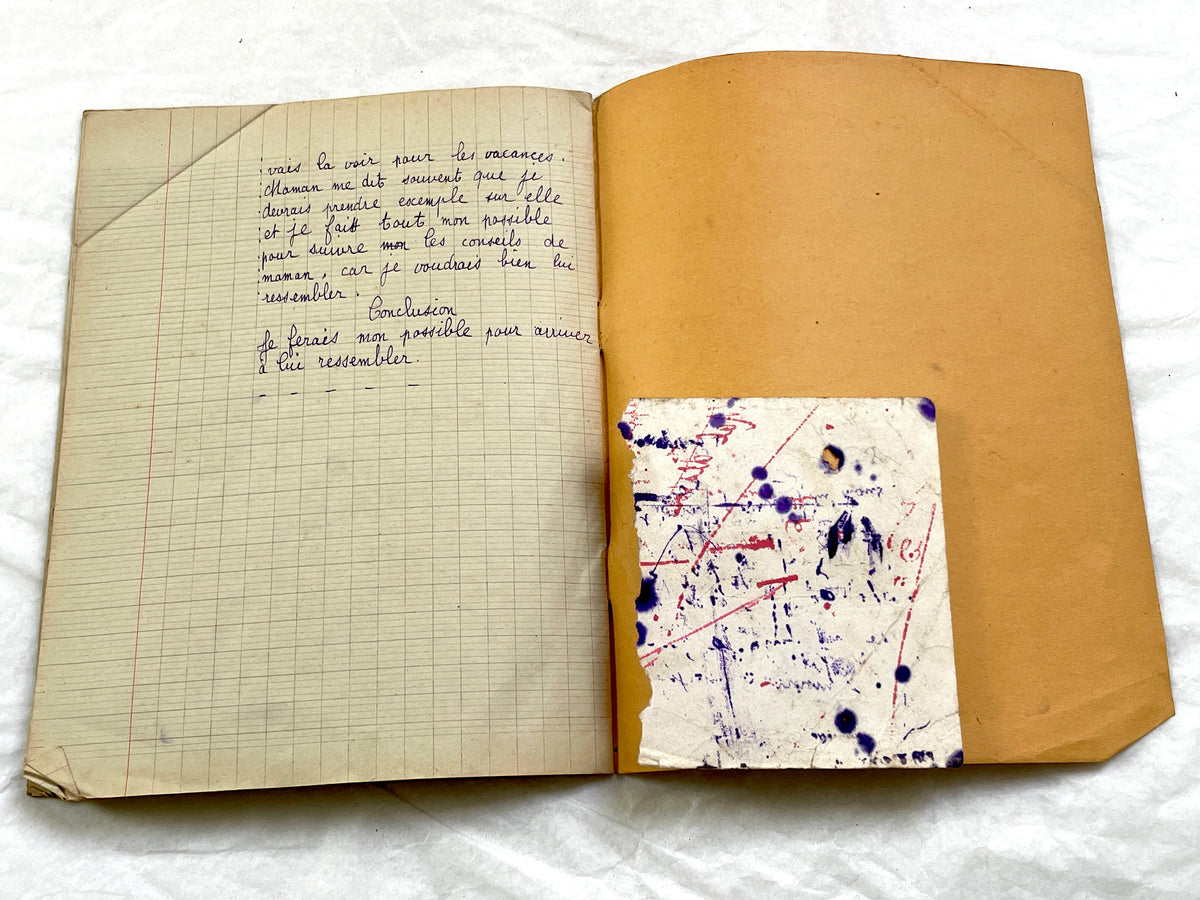 vais la voir pour les vacances.
Maman me dit souvent que je
devrais prendre exemple sur elle
et je fait tout mon possible
pour suivre mon les conseils de
maman, car je voudrais bien lui
ressembler.
Conclusion
Je ferais mon possible pour arriver
à lui ressembler.